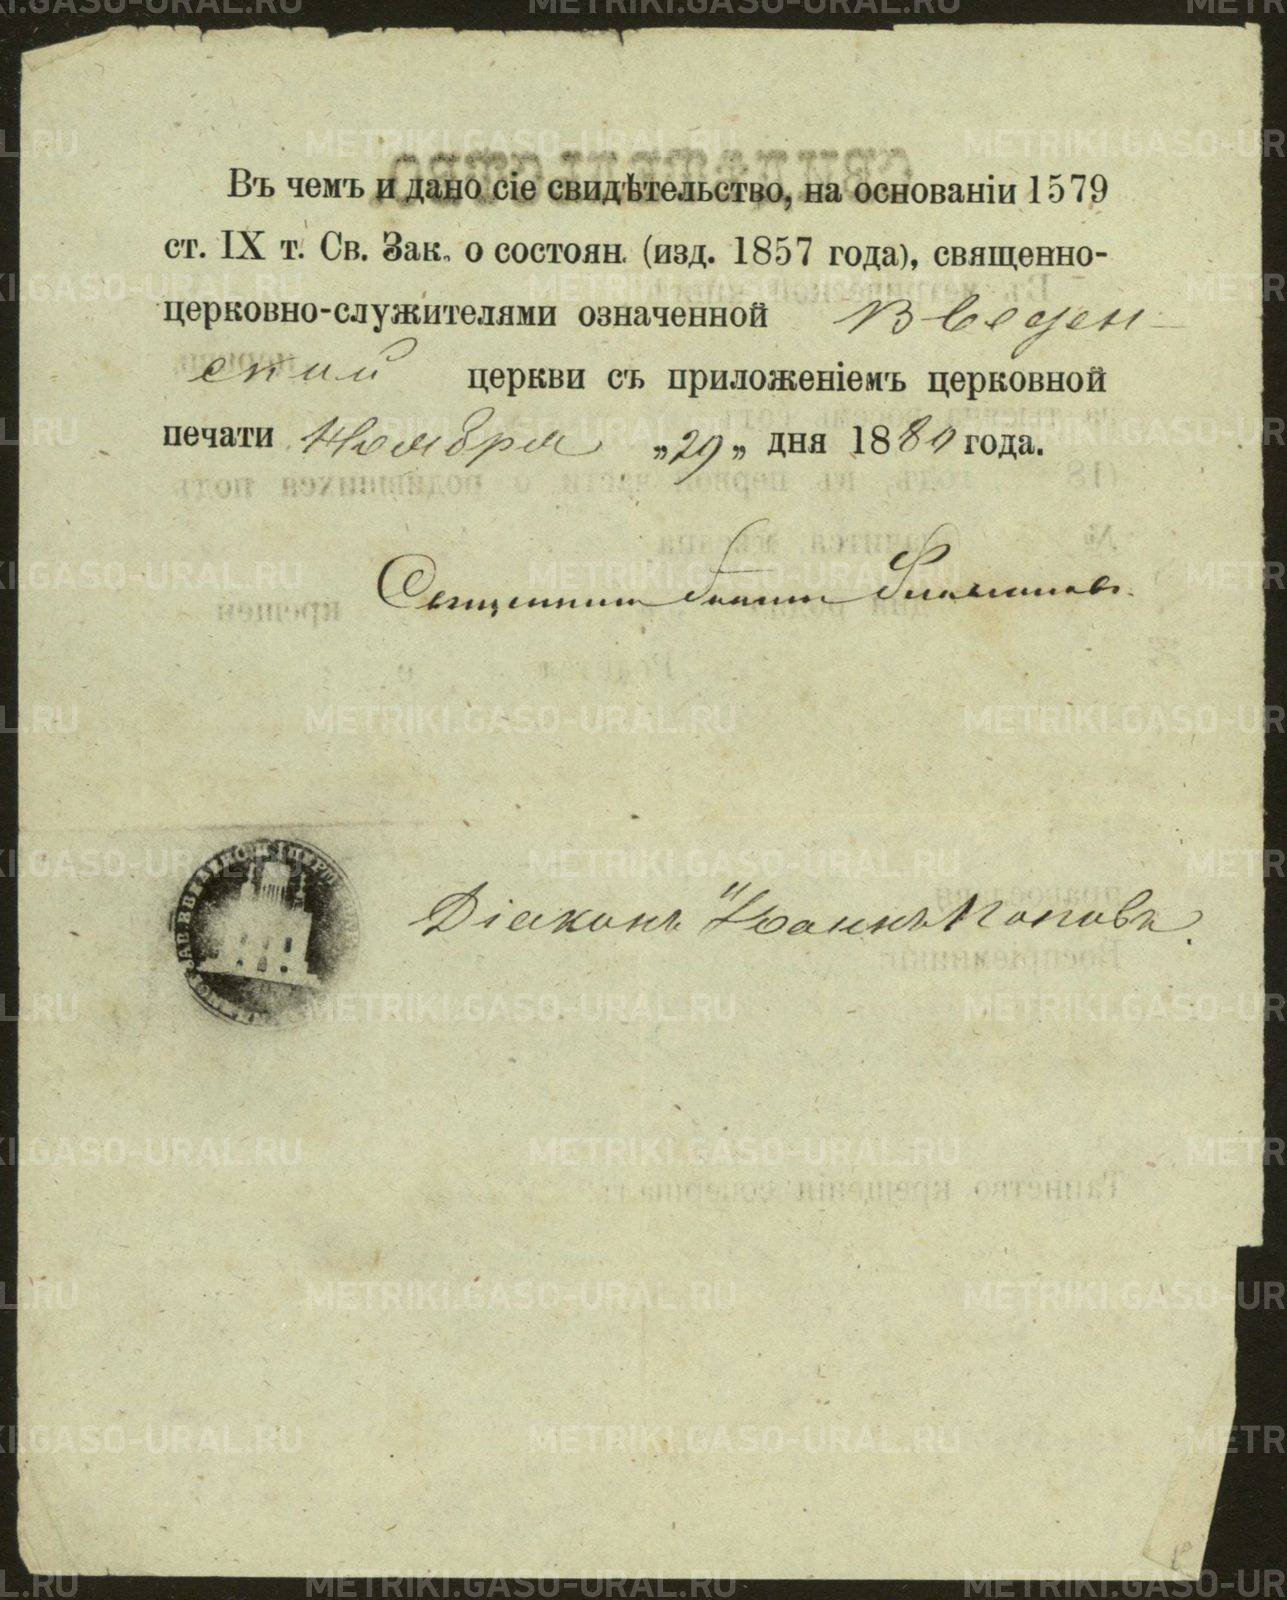 Въ чемъ и дано сіе свидѣтельство, на основаніи 1579
ст. IX т. Св. Зак. о состоян. (изд. 1857 года), священно-
церковно-служителями означенной Введен-
ской церкви съ приложеніемъ церковной
печати Ноября „29„ дня 1880 года.
Священникъ
Діаконъ Іоаннъ Поповъ.
METRIKI.GASO-URAL.RU